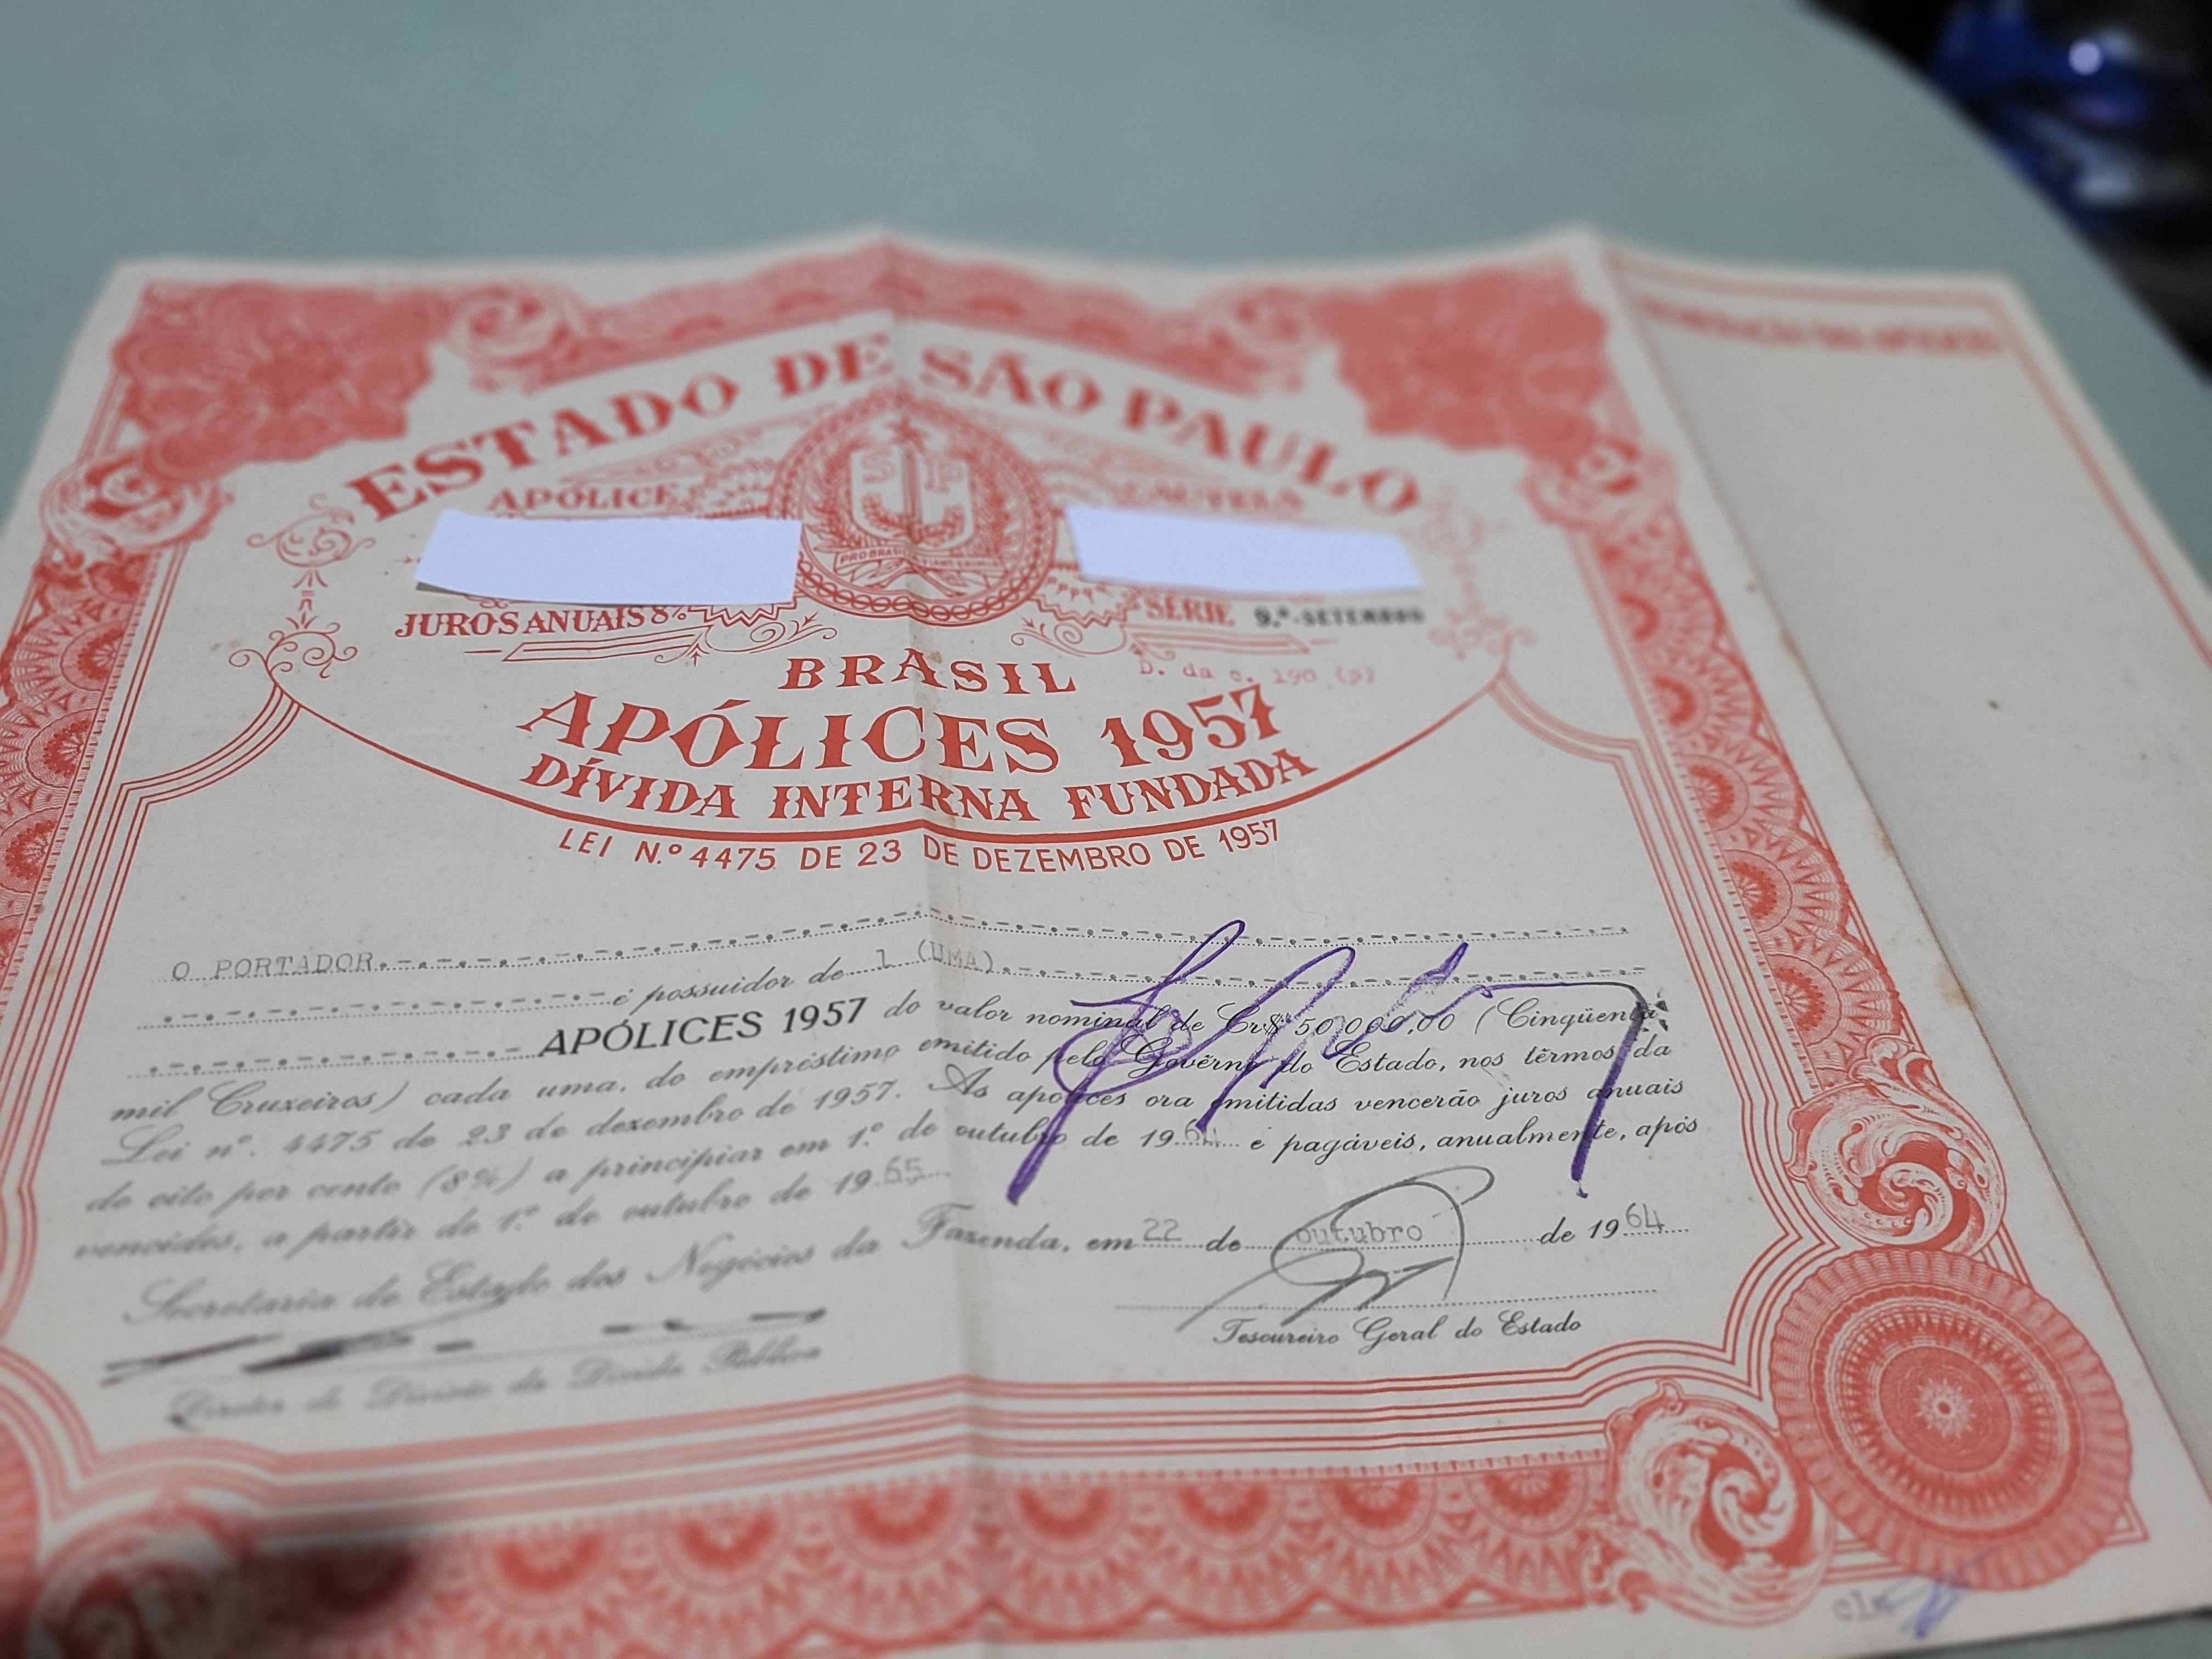 ESTADO DE SÃO PAULO
APÓLICE
CAUTELA
S P
JUROS ANUAIS 8%
SÉRIE 9.ª-SETEMBRO
BRASIL
D. da c. 190 (p)
APÓLICES 1957
DÍVIDA INTERNA FUNDADA
LEI N.º 4475 DE 23 DE DEZEMBRO DE 1957
O PORTADOR
é possuidor de 1 (UMA)
APÓLICES 1957 do valor nominal de Cr$ 50.000,00 (Cinqüenta
mil Cruzeiros) cada uma, do empréstimo emitido pelo Govêrno do Estado, nos têrmos da
Lei nº. 4475 de 23 de dezembro de 1957. As apolices ora emitidas vencerão juros anuais
de oito por cento (8%) a principiar em 1.º de outubro de 1964 e pagáveis, anualmente, após
vencidos, a partir de 1.º de outubro de 1965
Secretaria de Estado dos Negócios da Fazenda, em 22 de outubro de 1964
Tesoureiro Geral do Estado
Diretor da Divisão da Dívida Pública